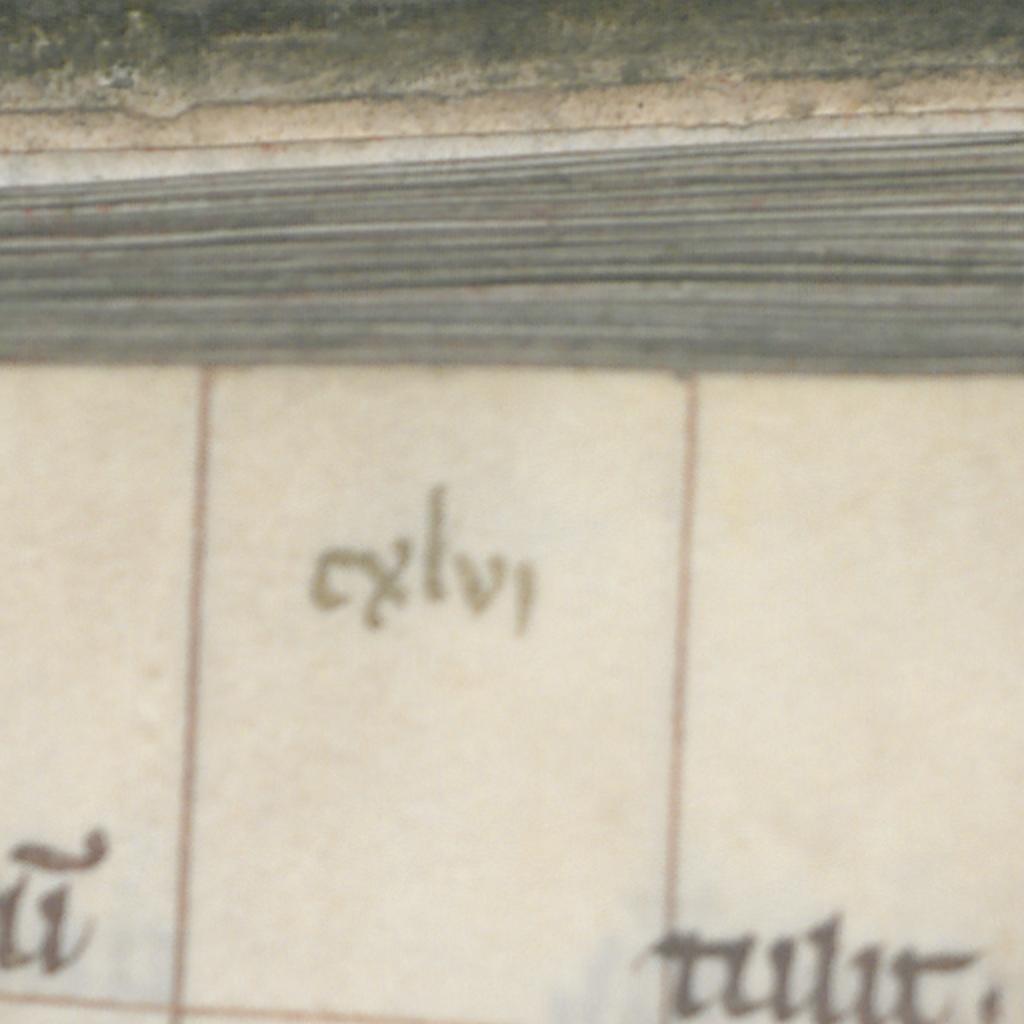 cxlvi
tulit.